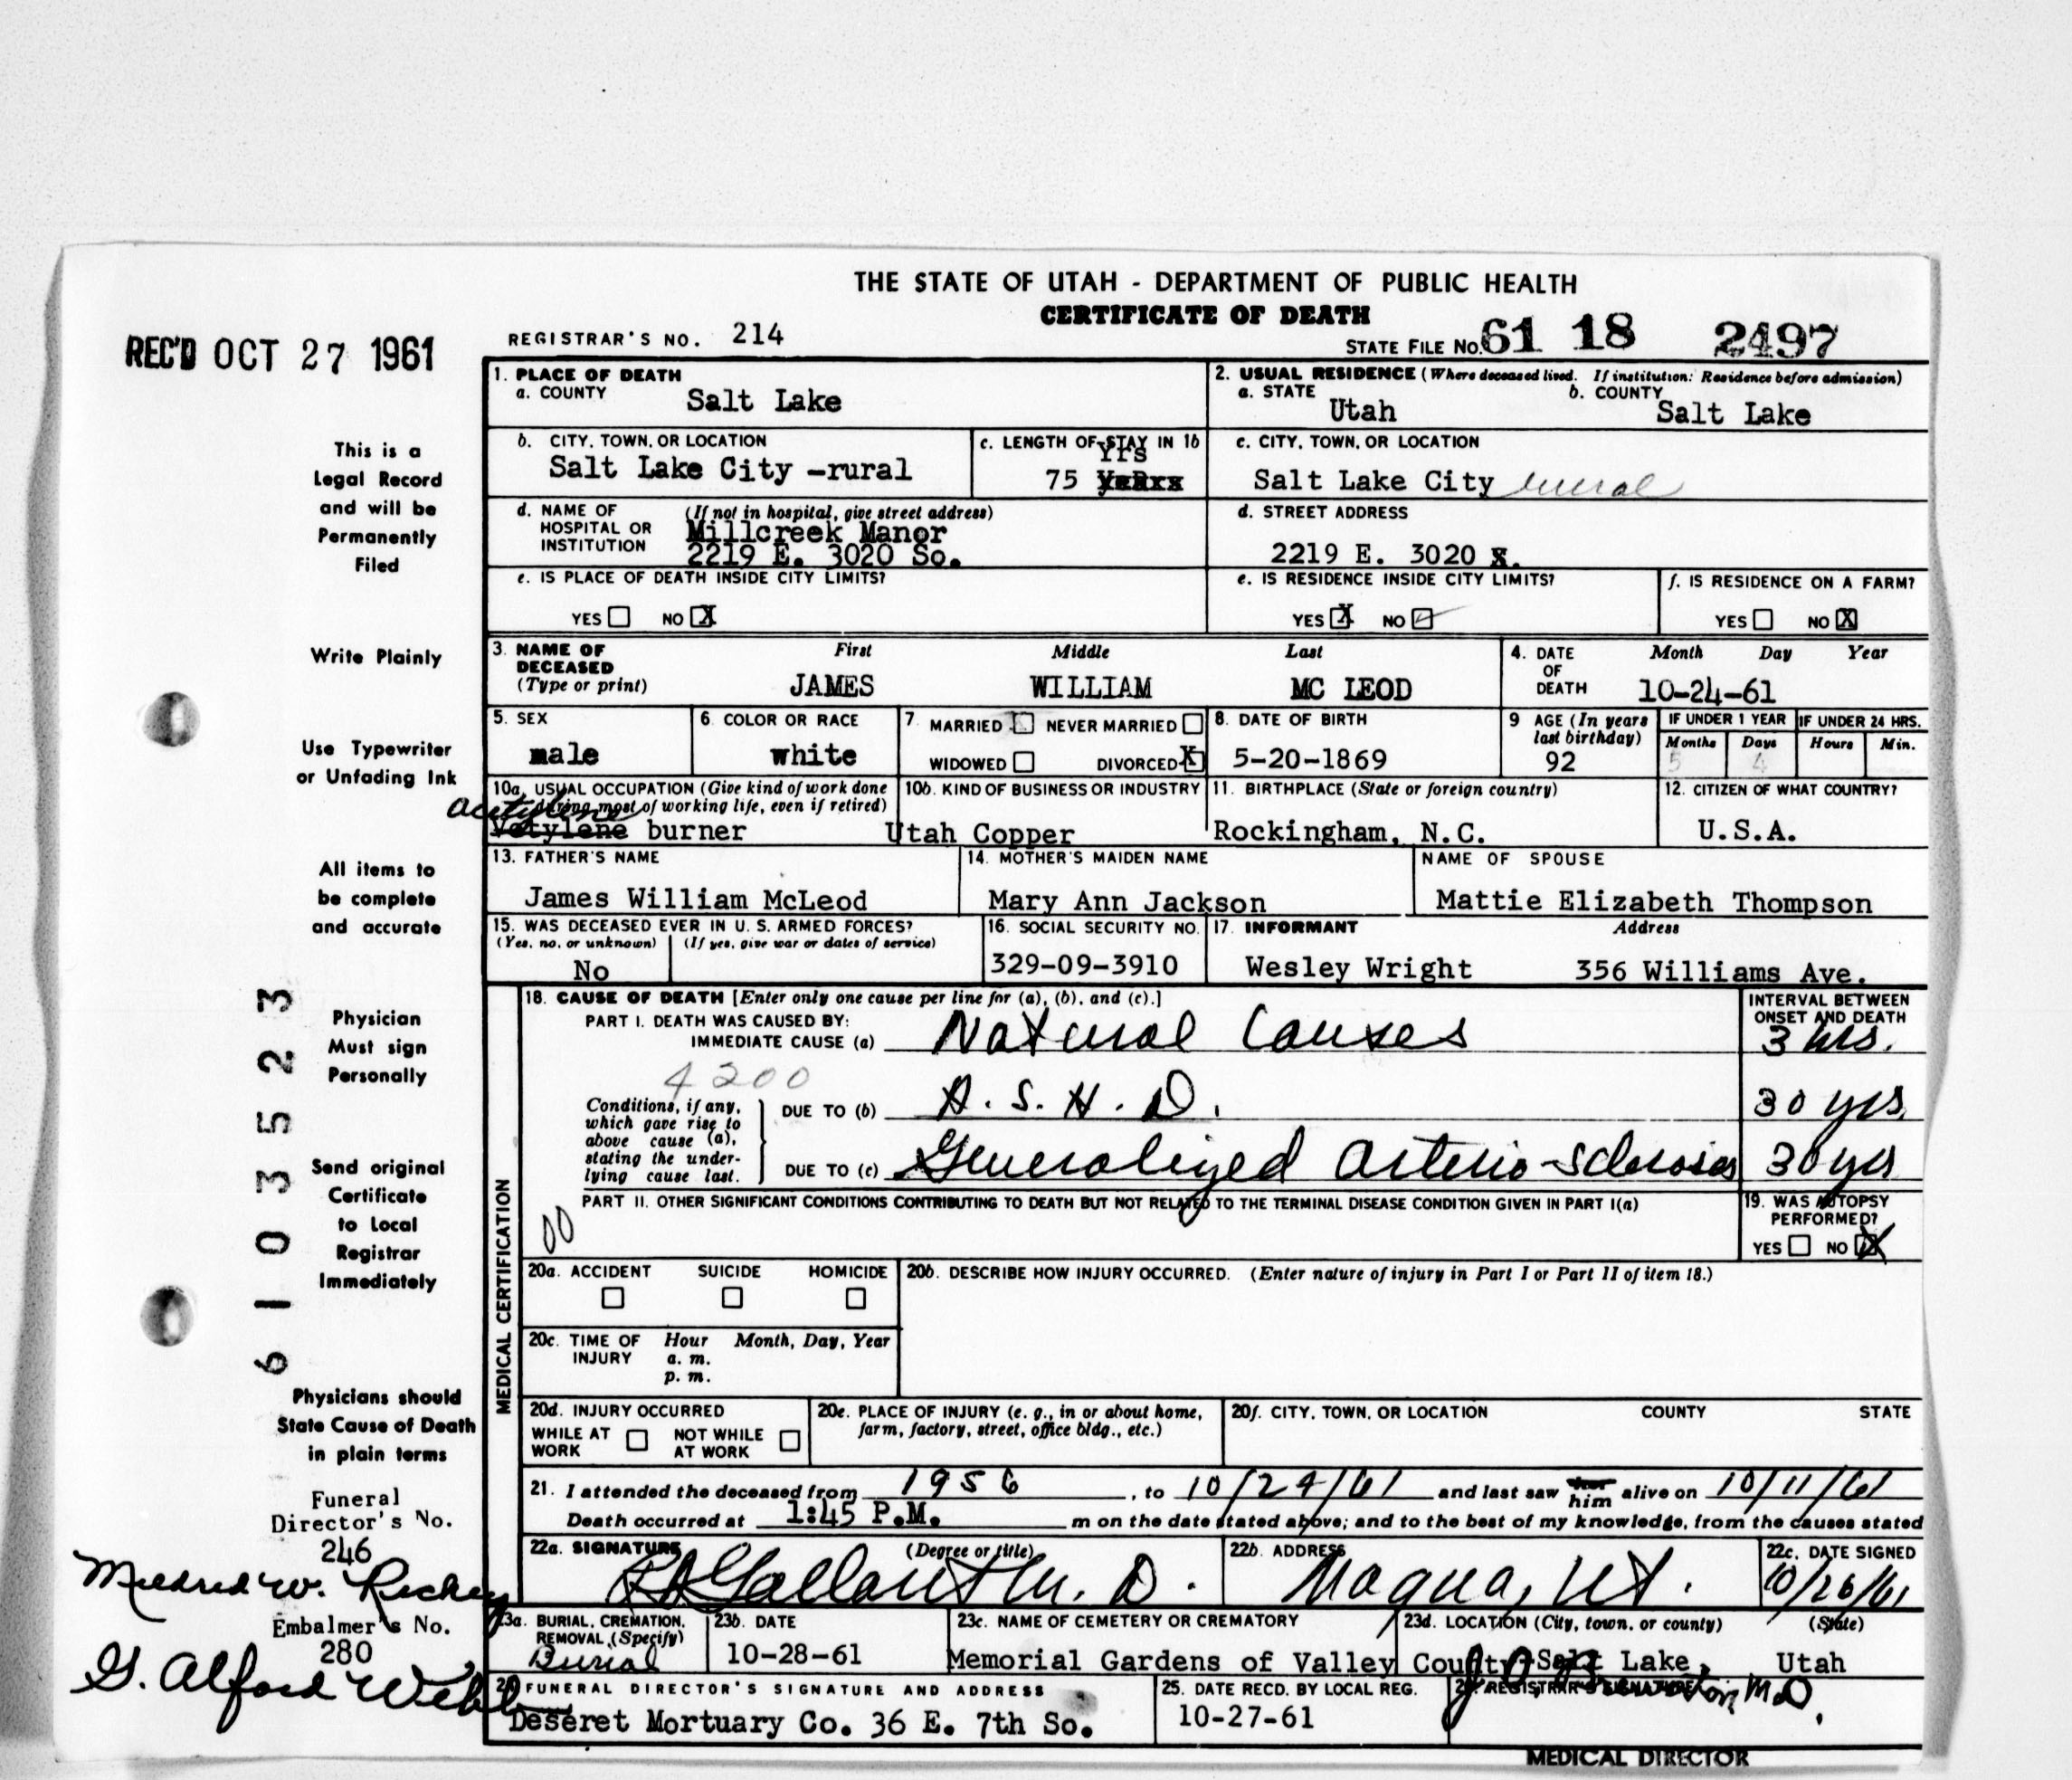 THE STATE OF UTAH - DEPARTMENT OF PUBLIC HEALTH
CERTIFICATE OF DEATH
REC'D OCT 27 1961
REGISTRAR'S NO. 214
STATE FILE NO. 61 18 2497
1. PLACE OF DEATH
a. COUNTY Salt Lake
2. USUAL RESIDENCE (Where deceased lived. If institution: Residence before admission)
a. STATE Utah b. COUNTY Salt Lake
b. CITY, TOWN, OR LOCATION Salt Lake City -rural
c. LENGTH OF STAY IN 1b 75 Yrs
c. CITY, TOWN, OR LOCATION Salt Lake City rural
d. NAME OF HOSPITAL OR INSTITUTION (If not in hospital, give street address)
Millcreek Manor
2219 E. 3020 So.
d. STREET ADDRESS
2219 E. 3020 S.
e. IS PLACE OF DEATH INSIDE CITY LIMITS?
YES NO X
e. IS RESIDENCE INSIDE CITY LIMITS?
YES X NO
f. IS RESIDENCE ON A FARM?
YES NO X
3. NAME OF DECEASED (Type or print)
First Middle Last
JAMES WILLIAM MC LEOD
4. DATE OF DEATH Month Day Year
10-24-61
5. SEX male
6. COLOR OR RACE white
7. MARRIED NEVER MARRIED
WIDOWED DIVORCED X
8. DATE OF BIRTH 5-20-1869
9 AGE (In years last birthday) 92
IF UNDER 1 YEAR Months 5 Days 4
IF UNDER 24 HRS. Hours Min.
10a. USUAL OCCUPATION (Give kind of work done during most of working life, even if retired)
acetylene
Vetylene burner
10b. KIND OF BUSINESS OR INDUSTRY
Utah Copper
11. BIRTHPLACE (State or foreign country)
Rockingham, N.C.
12. CITIZEN OF WHAT COUNTRY?
U.S.A.
13. FATHER'S NAME
James William McLeod
14. MOTHER'S MAIDEN NAME
Mary Ann Jackson
NAME OF SPOUSE
Mattie Elizabeth Thompson
15. WAS DECEASED EVER IN U. S. ARMED FORCES?
(Yes, no, or unknown) (If yes, give war or dates of service)
No
16. SOCIAL SECURITY NO.
329-09-3910
17. INFORMANT Address
Wesley Wright 356 Williams Ave.
MEDICAL CERTIFICATION
18. CAUSE OF DEATH [Enter only one cause per line for (a), (b), and (c).]
INTERVAL BETWEEN ONSET AND DEATH
PART I. DEATH WAS CAUSED BY:
IMMEDIATE CAUSE (a) Natural Causes 3 hrs.
4200
Conditions, if any, which gave rise to above cause (a), stating the underlying cause last.
DUE TO (b) A.S.H.D. 30 yrs.
DUE TO (c) Generalized Arterio-sclerosis 30 yrs
PART II. OTHER SIGNIFICANT CONDITIONS CONTRIBUTING TO DEATH BUT NOT RELATED TO THE TERMINAL DISEASE CONDITION GIVEN IN PART I(a)
00
19. WAS AUTOPSY PERFORMED?
YES NO X
20a. ACCIDENT SUICIDE HOMICIDE
20b. DESCRIBE HOW INJURY OCCURRED. (Enter nature of injury in Part I or Part II of item 18.)
20c. TIME OF INJURY Hour Month, Day, Year
a. m.
p. m.
20d. INJURY OCCURRED
WHILE AT WORK NOT WHILE AT WORK
20e. PLACE OF INJURY (e. g., in or about home, farm, factory, street, office bldg., etc.)
20f. CITY, TOWN, OR LOCATION COUNTY STATE
21. I attended the deceased from 1956, to 10/24/61 and last saw her him alive on 10/11/61
Death occurred at 1:45 P.M. m on the date stated above; and to the best of my knowledge, from the causes stated
22a. SIGNATURE (Degree or title)
Gallant M.D.
22b. ADDRESS
Magna, Ut.
22c. DATE SIGNED
10/26/61
23a. BURIAL, CREMATION, REMOVAL (Specify)
Burial
23b. DATE
10-28-61
23c. NAME OF CEMETERY OR CREMATORY
Memorial Gardens of Valley
23d. LOCATION (City, town, or county) (State)
County-Salt Lake, Utah
FUNERAL DIRECTOR'S SIGNATURE AND ADDRESS
Deseret Mortuary Co. 36 E. 7th So.
25. DATE RECD. BY LOCAL REG.
10-27-61
REGISTRAR'S SIGNATURE
M.D.
MEDICAL DIRECTOR
This is a
Legal Record
and will be
Permanently
Filed
Write Plainly
Use Typewriter
or Unfading Ink
All items to
be complete
and accurate
Physician
Must sign
Personally
Send original
Certificate
to Local
Registrar
Immediately
61035523
Physicians should
State Cause of Death
in plain terms
Funeral
Director's No.
246
Mildred W. Richey
Embalmer's No.
280
G. Alford Webb